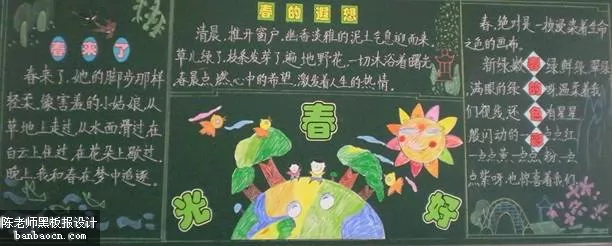 春来了
春来了,她的脚步那样
轻柔,像害羞的小姑娘,从
草地上走过,从水面滑过,在
白云上住过,在花朵上歇过,
晚上,我和春在梦中追逐。
春的遐想
清晨,推开窗户,幽香淡雅的泥土气息迎面来,
草儿绿了,枝条发芽了,遍地野花,一切沐浴着曙光
春景点燃心中的希望,激发着人生的热情。
春光好
春,绝对是一物渲染着生命
之色的画布。
新绿嫩绿鲜绿,翠绿
满眼的绿呀,温柔着我
们的视线,还有星星
般闪动的一点点红
一点点黄一点点粉一点
点紫呀,也惊喜着我们
陈老师黑板报设计
banbaocn.com